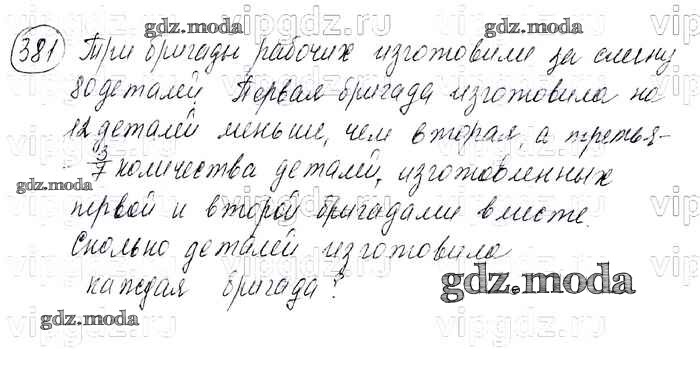 381 Три бригады рабочих изготовили за смену
80 деталей. Первая бригада изготовила на
12 деталей меньше, чем вторая, а третья –
3/7 количества деталей, изготовленных
первой и второй бригадами вместе.
Сколько деталей изготовила
каждая бригада?
gdz.moda
gdz.moda
gdz.moda
gdz.moda
gdz.moda
vipgdz.moda